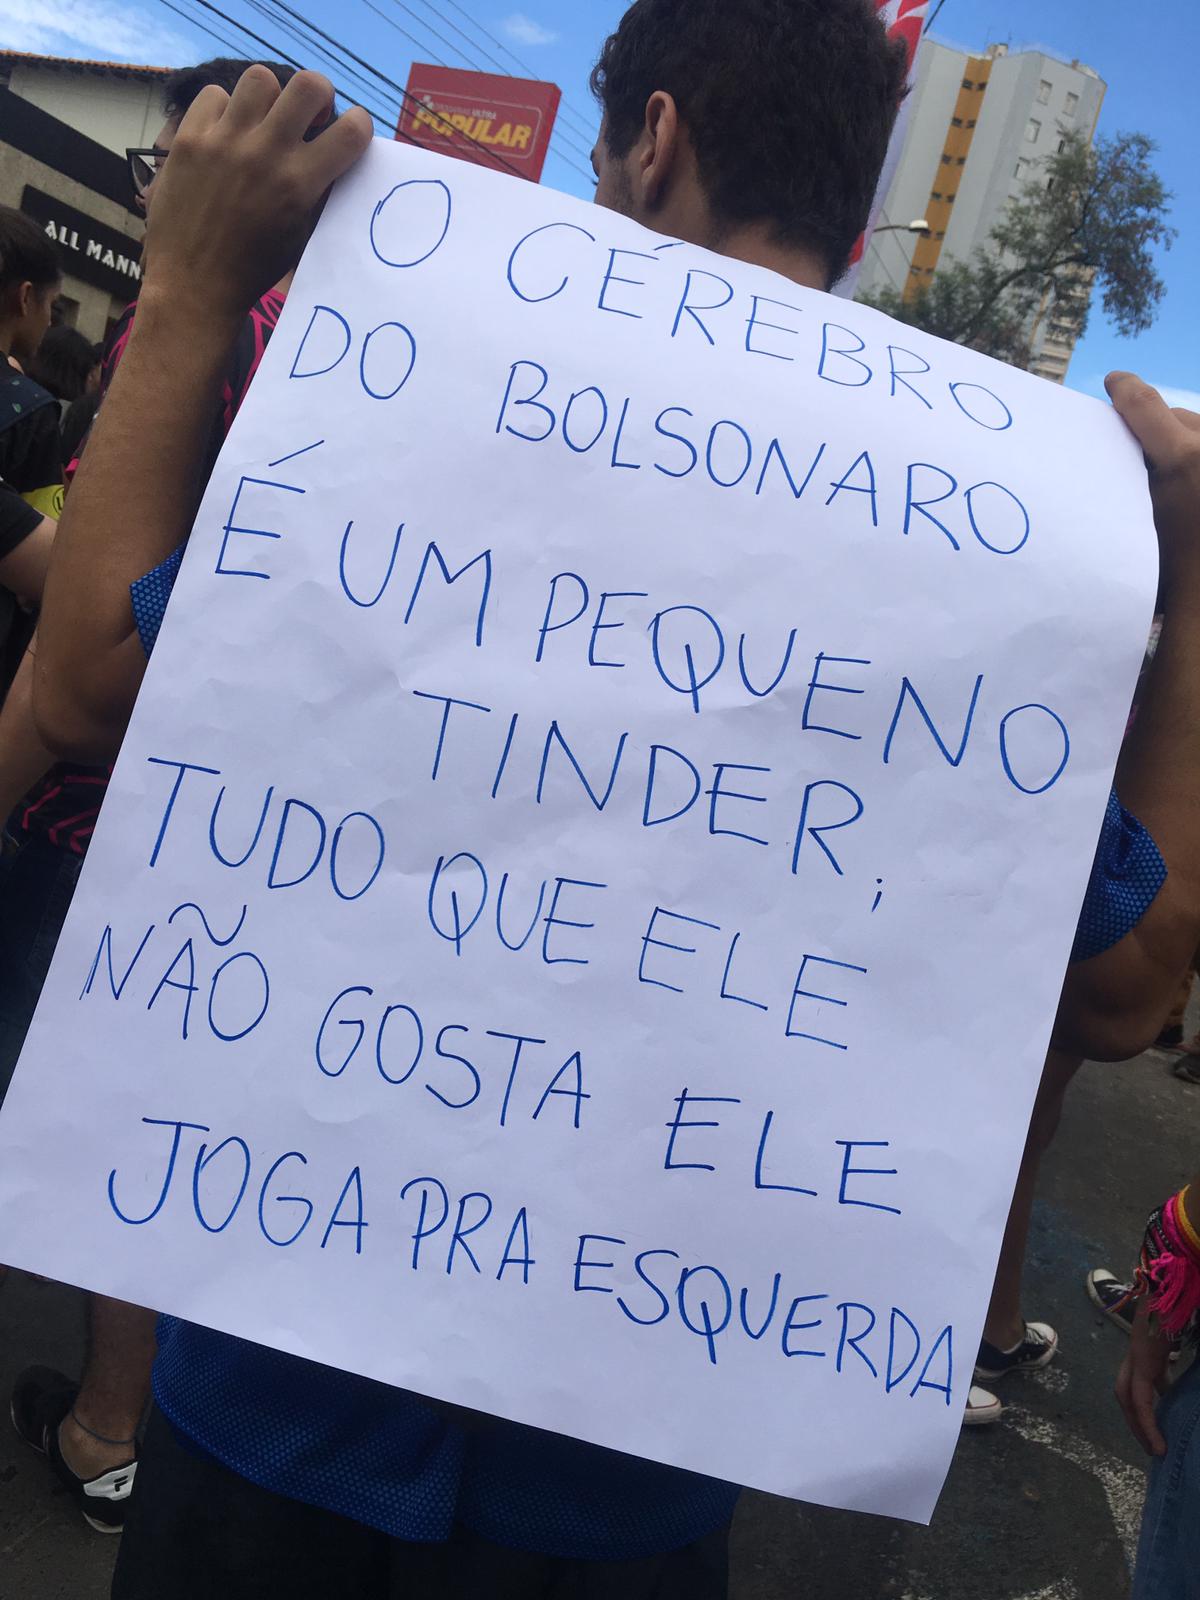 DROGARIAS ULTRA
POPULAR
ALL MANN
O CÉREBRO
DO BOLSONARO
É UM PEQUENO
TINDER;
TUDO QUE ELE
NÃO GOSTA ELE
JOGA PRA ESQUERDA